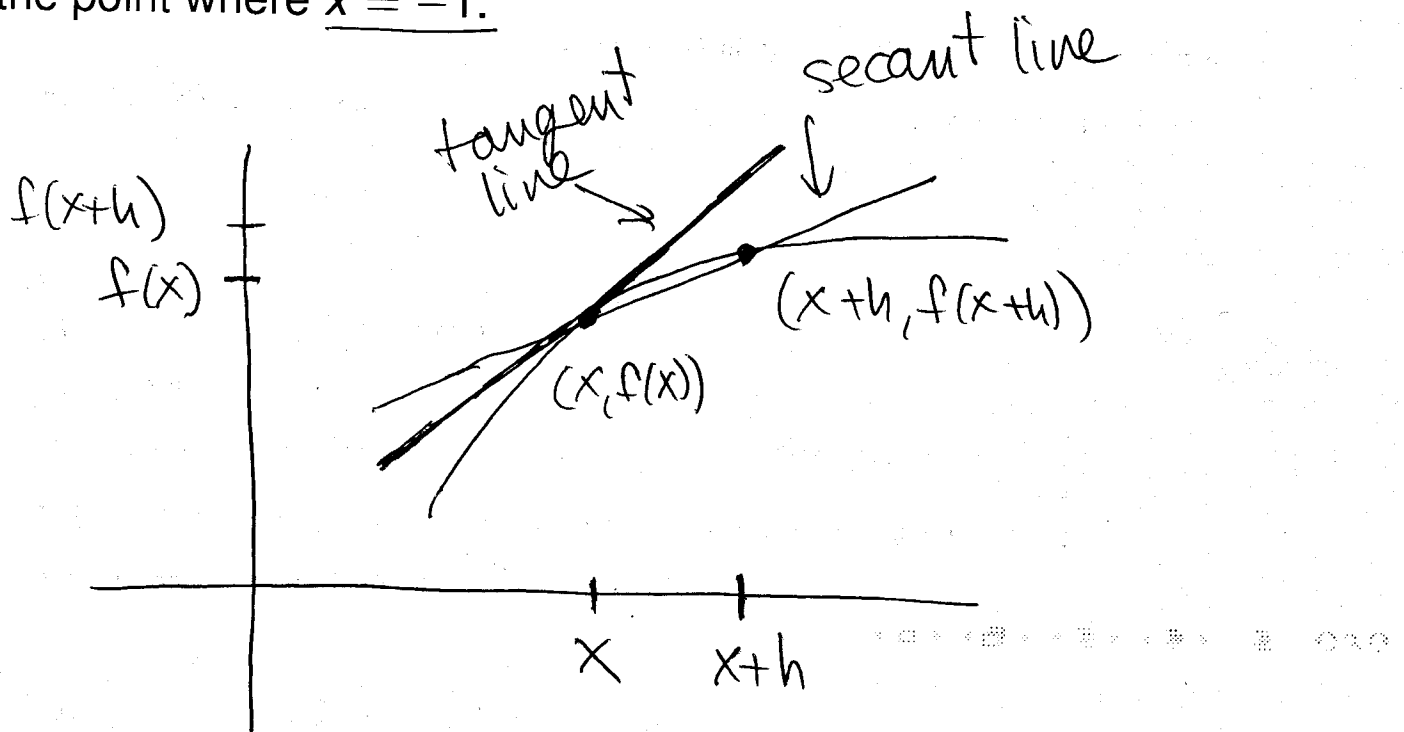 the point where x = −1.
secant line
tangent
line
f(x+h)
f(x)
(x+h, f(x+h))
(x, f(x))
x
x+h